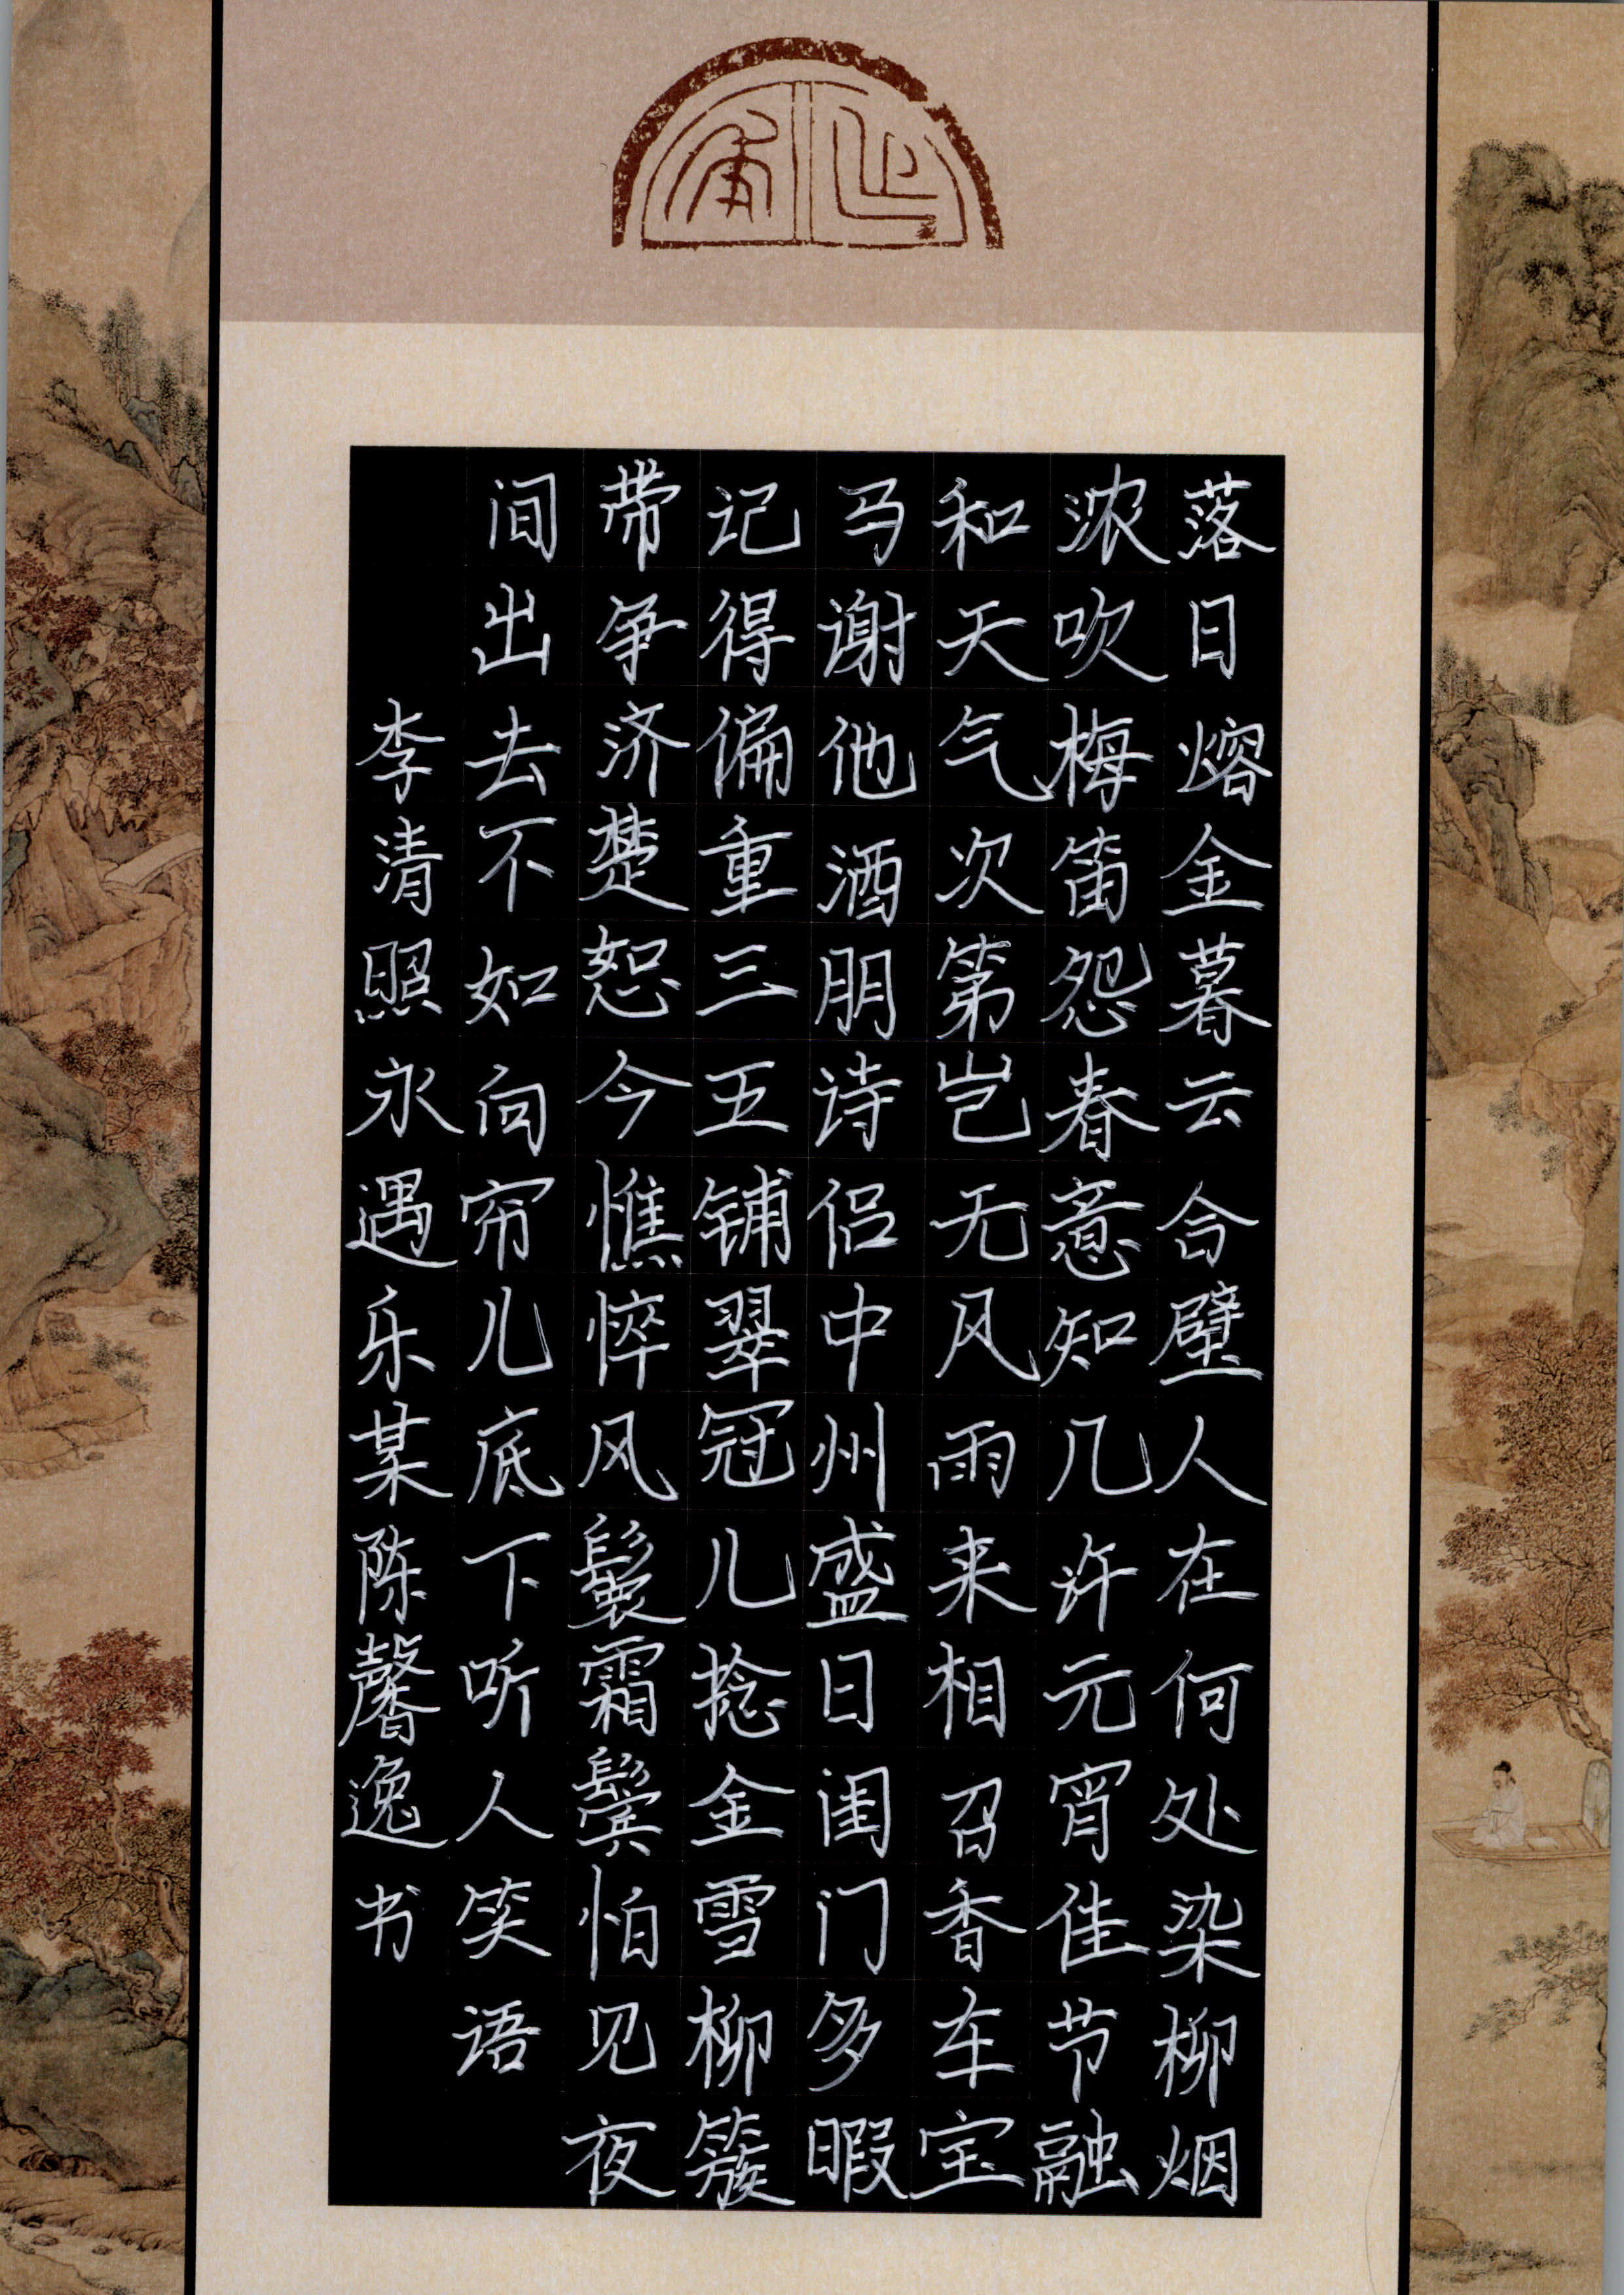 落日熔金暮云合璧人在何处染柳烟
浓吹梅笛怨春意知几许元宵佳节融
和天气次第岂无风雨来相召香车宝
马谢他酒朋诗侣中州盛日闺门多暇
记得偏重三五铺翠冠儿捻金雪柳簇
带争济楚恕今憔悴风鬟霜鬓怕见夜
间出去不如向帘儿底下听人笑语
李清照永遇乐某陈馨逸书